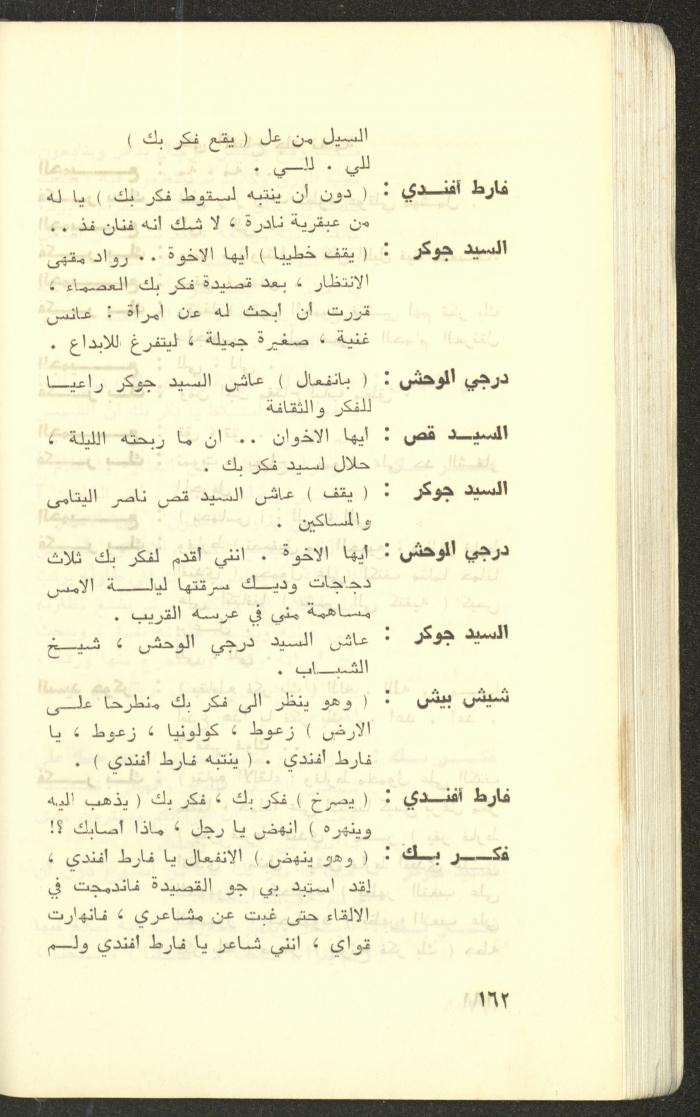 السيل من عل ( يقع فكر بك )
للي . للــي .
فارط أفنــدي : ( دون أن ينتبه لسقوط فكر بك ) يا له
من عبقرية نادرة ، لا شك انه فنان فذ . .
السيد جوكر : ( يقف خطيبا ) أيها الاخوة . . رواد مقهى
الانتظار ، بعد قصيدة فكر بك العصماء ،
قررت أن أبحث له عن امرأة : عانس
غنية ، صغيرة جميلة ، ليتفرغ للابداع .
درجي الموحش : ( بانفعال ) عاش السيد جوكر راعيــا
للفكر والثقافة
السيــد قص : أيها الاخوان . . ان ما ربحته الليلة ،
حلال لسيد فكر بك .
السيد جوكر : ( يقف ) عاش السيد قص ناصر اليتامى
والمساكين .
درجي الموحش : أيها الاخوة . انني أقدم لفكر بك ثلاث
دجاجات وديــك سرقتها ليلــــة الامس
مساهمة مني في عرسه القريب .
السيد جوكر : عاش السيد درجي الوحش ، شيــخ
الشبــاب .
شيش بيش : ( وهو ينظر الى فكر بك منطرحا علــى
الارض ) زعوط ، كولونيا ، زعوط ، يا
فارط أفندي . ( ينتبه فارط أفندي ) .
فارط أفنــدي : ( يصرخ ) فكر بك ، فكر بك ( يذهب اليه
وينهره ) انهض يا رجل ، ماذا أصابك ؟!
فكـــر بــك : ( وهو ينهض ) الانفعال يا فارط أفندي ،
لقد استبد بي جو القصيدة فاندمجت في
الالقاء حتى غبت عن مشاعري ، فانهارت
قواي ، انني شاعر يا فارط افندي ولــم
١٦٢